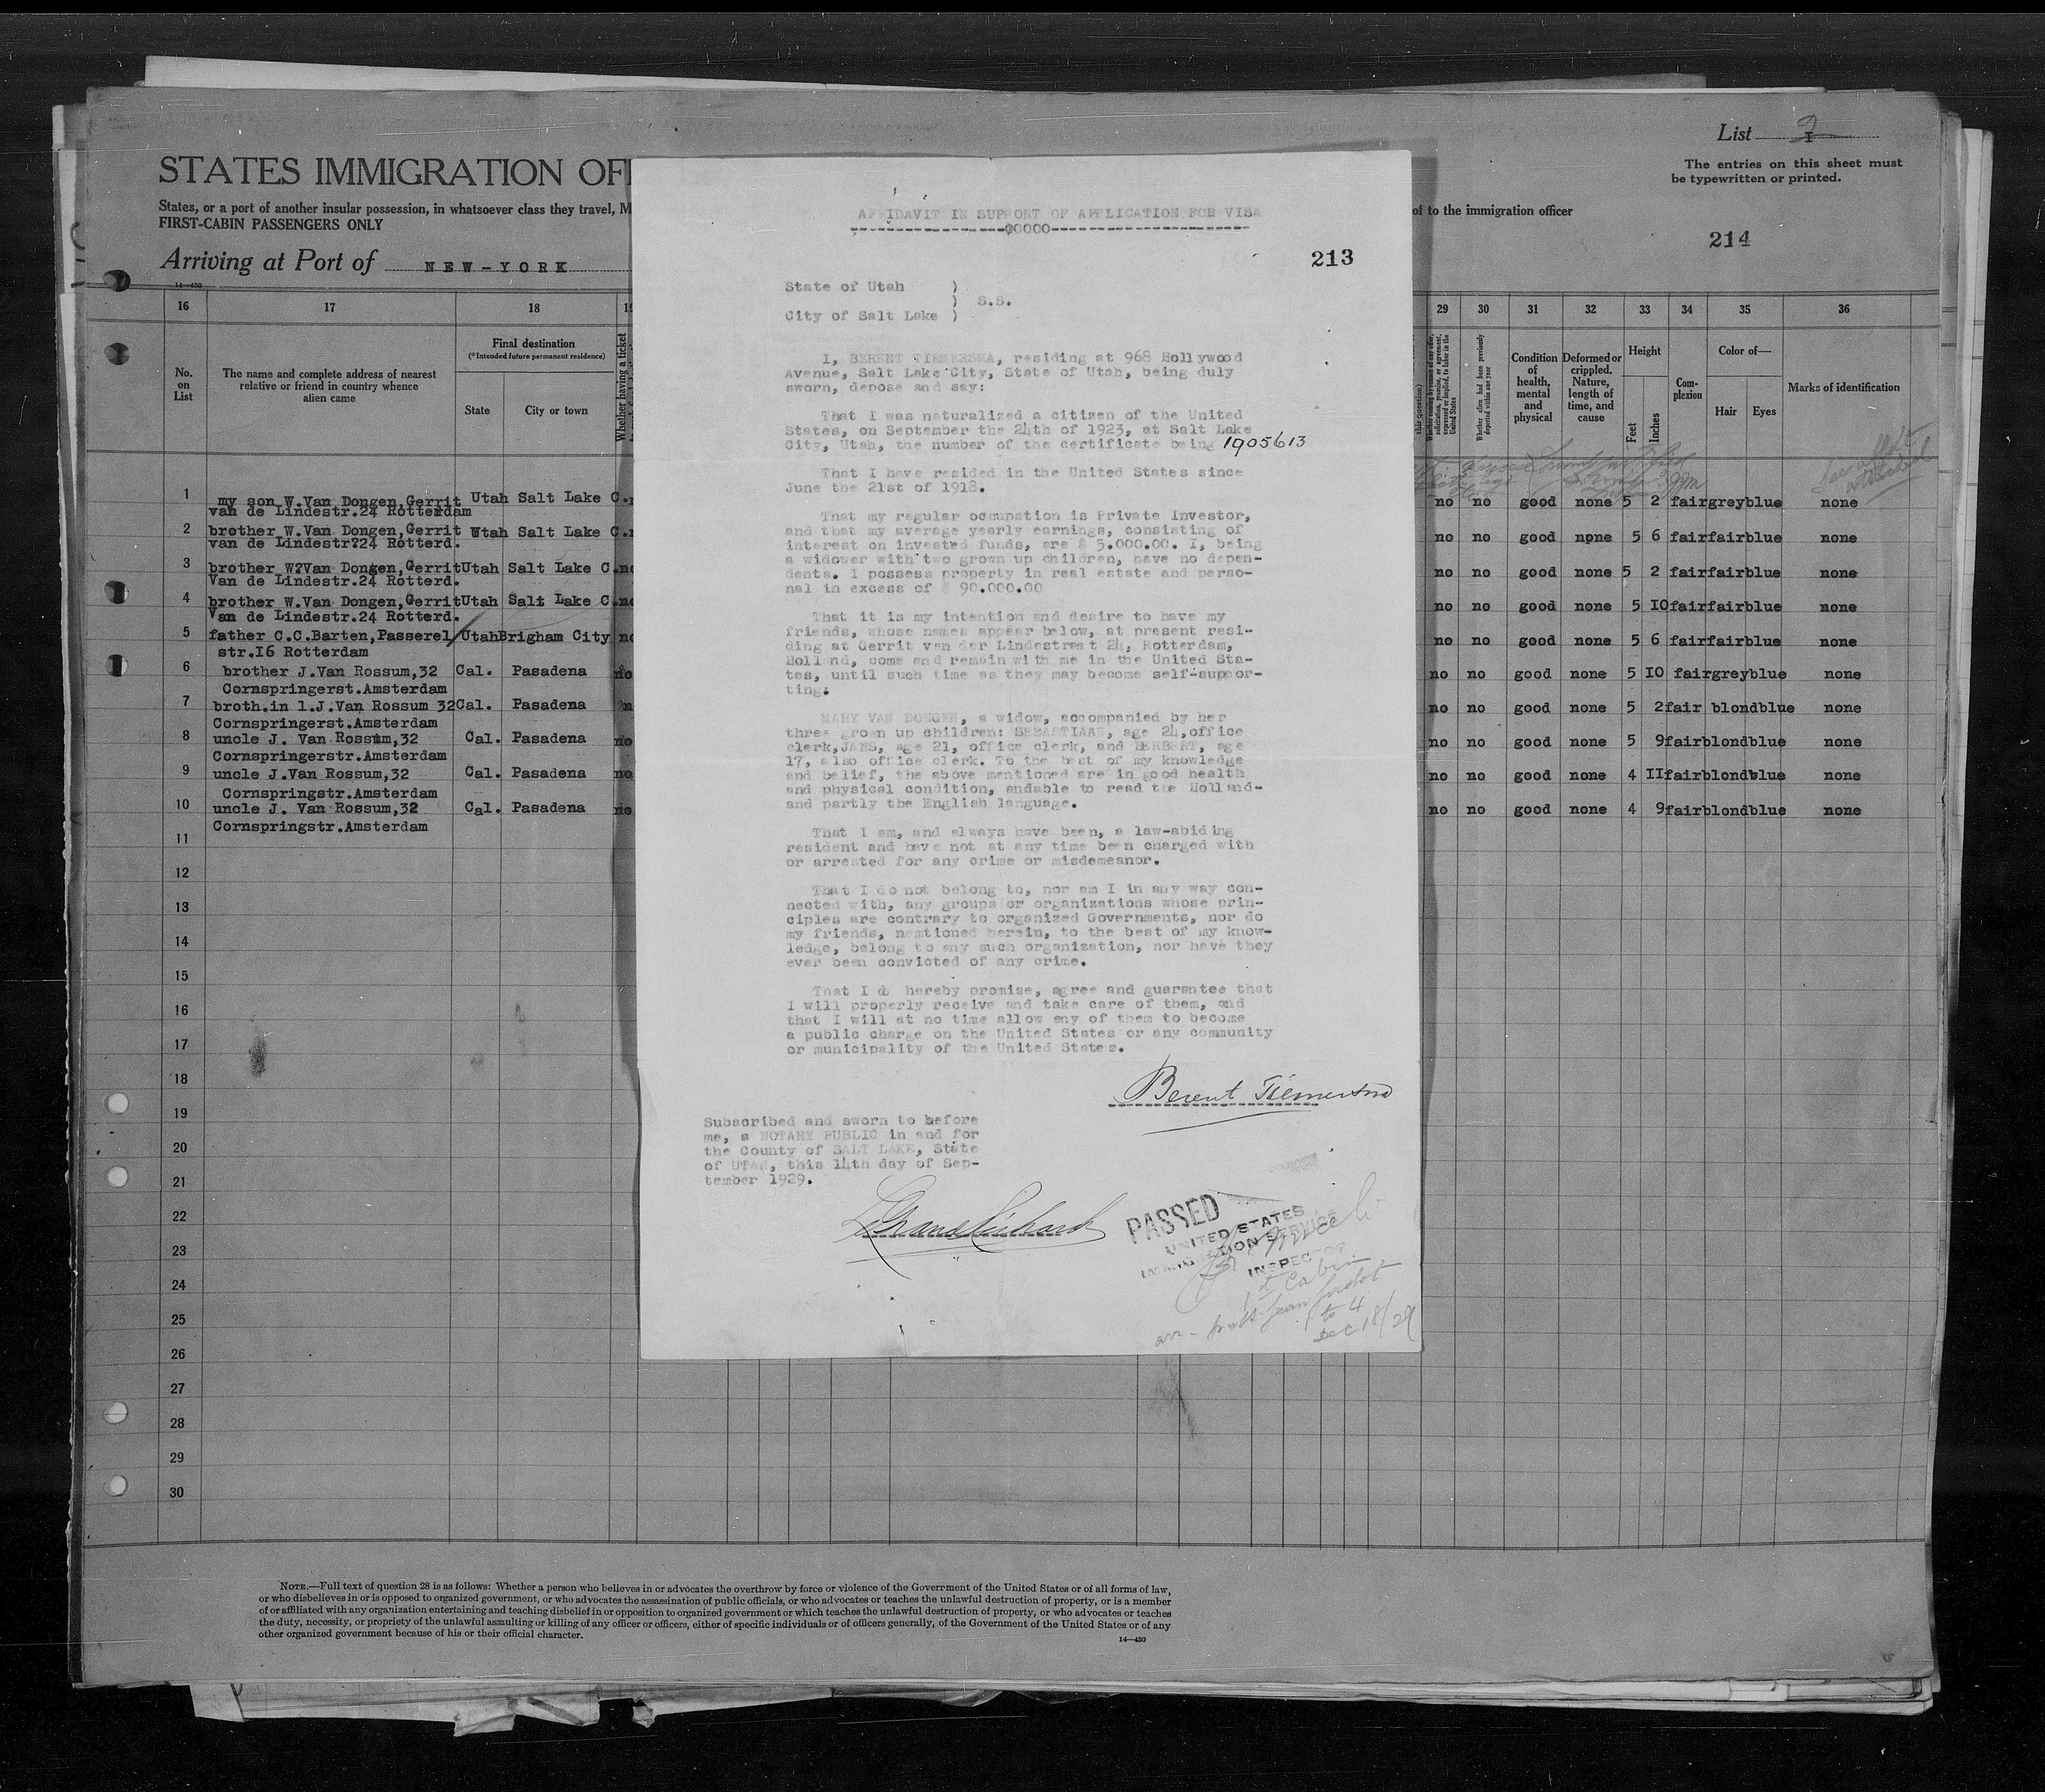 List 2
The entries on this sheet must
be typewritten or printed.
STATES IMMIGRATION OF
States, or a port of another insular possession, in whatsoever class they travel, M
of to the immigration officer
FIRST-CABIN PASSENGERS ONLY
214
Arriving at Port of NEW-YORK
14—430
16 17 18
No.
on
List
The name and complete address of nearest
relative or friend in country whence
alien came
Final destination
(*Intended future permanent residence)
State
City or town
Whether having a ticket
1 my son W.Van Dongen,Gerrit Utah Salt Lake C.
van de Lindestr.24 Rotterdam
2 brother W.Van Dongen,Gerrit Utah Salt Lake C.
van de Lindestr?24 Rotterd.
3 brother W?Van Dongen,Gerrit Utah Salt Lake C.no
Van de Lindestr.24 Rotterd.
4 brother W.Van Dongen,Gerrit Utah Salt Lake C.no
Van de Lindestr.24 Rotterd.
5 father C.C.Barten,Passerel Utah Brigham City no
str.I6 Rotterdam
6 brother J.Van Rossum,32 Cal. Pasadena no
Cornspringerst.Amsterdam
7 broth.in l.J.Van Rossum 32 Cal. Pasadena
Cornspringerst.Amsterdam
8 uncle J. Van Rossum,32 Cal. Pasadena no
Cornspringerstr.Amsterdam
9 uncle J.Van Rossum,32 Cal. Pasadena no
Cornspringstr.Amsterdam
10 uncle J. Van Rossum,32 Cal. Pasadena no
Cornspringstr.Amsterdam
11
12
13
14
15
16
17
18
19
20
21
22
23
24
25
26
27
28
29
30
AFFIDAVIT IN SUPPORT OF APPLICATION FOR VISA
-----------------00000---------------------
213
State of Utah )
) S.S.
City of Salt Lake )
I, BERENT TIEMERSMA, residing at 968 Hollywood
Avenue, Salt Lake City, State of Utah, being duly
sworn, depose and say:
That I was naturalized a citizen of the United
States, on September the 24th of 1923, at Salt Lake
City, Utah, the number of the certificate being 1905613
That I have resided in the United States since
June the 21st of 1918.
That my regular occupation is Private Investor,
and that my average yearly earnings, consisting of
interest on invested funds, are $ 5.000.00. I, being
a widower with two grown up children, have no depen-
dents. I possess property in real estate and perso-
nal in excess of $ 90.000.00
That it is my intention and desire to have my
friends, whose names appear below, at present resi-
ding at Gerrit van der Lindestraat 24, Rotterdam,
Holland, come and remain with me in the United Sta-
tes, until such time as they may become self-suppor-
ting:
MARY VAN DONGEN, a widow, accompanied by her
three grown up children: SEBASTIAAN, age 24,office
clerk,JANS, age 21, office clerk, and HERBERT, age
17, also office clerk. To the best of my knowledge
and belief, the above mentioned are in good health
and physical condition, andable to read the Holland-
and partly the English language.
That I am, and always have been, a law-abiding
resident and have not at any time been charged with
or arrested for any crime or misdemeanor.
That I do not belong to, nor am I in any way con-
nected with, any groups or organizations whose prin-
ciples are contrary to organized Governments, nor do
my friends, mentioned herein, to the best of my know-
ledge, belong to any such organization, nor have they
ever been convicted of any crime.
That I do hereby promise, agree and guarantee that
I will properly receive and take care of them, and
that I will at no time allow any of them to become
a public charge on the United States or any community
or municipality of the United States.
Berent Tiemersma
Subscribed and sworn to before
me, a NOTARY PUBLIC in and for
the County of SALT LAKE, State
of UTAH, this 14th day of Sep-
tember 1929.
LeGrand Richards
PASSED
UNITED STATES
IMMIGRATION SERVICE
INSPECTOR
1st Cabin
1 to 4
Dec 18/29
29 30 31 32 33 34 35 36
Whether alien had been previously
deported within one year
Condition
of
health,
mental
and
physical
Deformed or
crippled.
Nature,
length of
time, and
cause
Height
Feet
Inches
Com-
plexion
Color of—
Hair
Eyes
Marks of identification
no no good none 5 2 fair grey blue none
no no good none 5 6 fair fair blue none
no no good none 5 2 fair fair blue none
no no good none 5 IO fair fair blue none
no no good none 5 6 fair fair blue none
no no good none 5 IO fair grey blue none
no no good none 5 2 fair blond blue none
no no good none 5 9 fair blond blue none
no no good none 4 II fair blond blue none
no no good none 4 9 fair blond blue none
NOTE.—Full text of question 28 is as follows: Whether a person who believes in or advocates the overthrow by force or violence of the Government of the United States or of all forms of law,
or who disbelieves in or is opposed to organized government, or who advocates the assassination of public officials, or who advocates or teaches the unlawful destruction of property, or is a member
of or affiliated with any organization entertaining and teaching disbelief in or opposition to organized government or which teaches the unlawful destruction of property, or who advocates or teaches
the duty, necessity, or propriety of the unlawful assaulting or killing of any officer or officers, either of specific individuals or of officers generally, of the Government of the United States or of any
other organized government because of his or their official character.
14—430